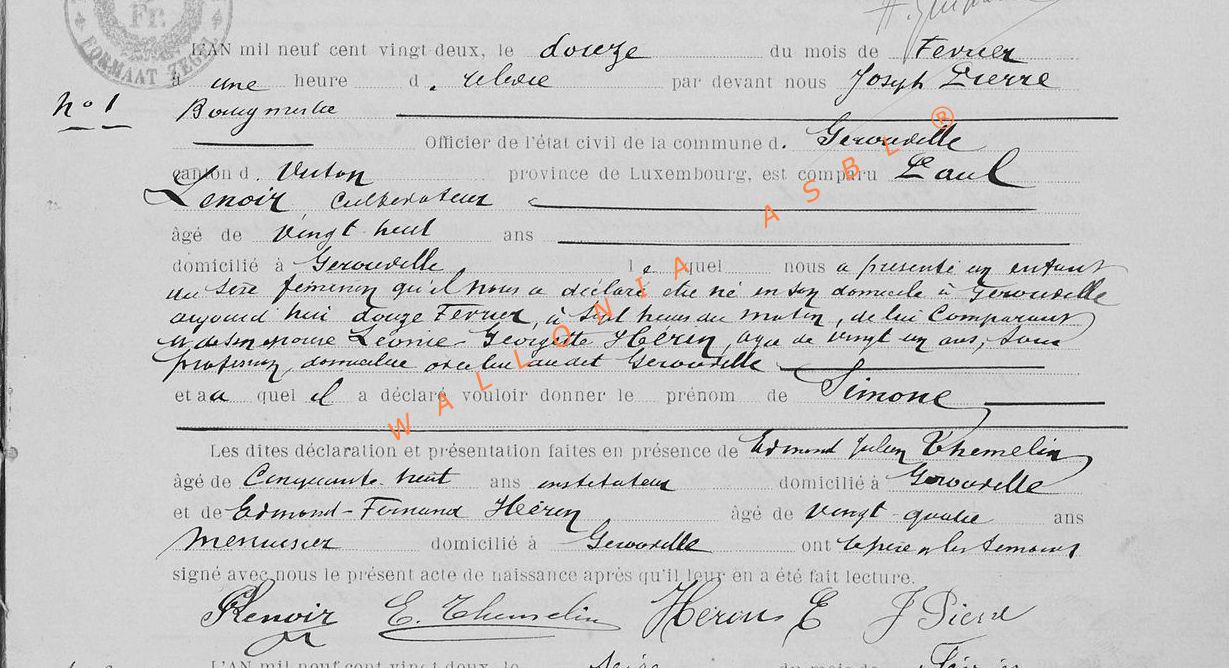 Fr.
FORMAAT ZEGEL
L'AN mil neuf cent vingt-deux, le douze du mois de Fevrier
à une heure d. relevée par devant nous Joseph Pierre
n° 1
Bourgmestre
Officier de l'état civil de la commune d. Gerouville
canton d. Virton province de Luxembourg, est comparu Paul
Lenoir Cultivateur
âgé de vingt huit ans
domicilié à Gerouville le quel nous a présenté un enfant
du sexe féminin qu'il nous a déclaré être né en son domicile à Gerouville
aujourd'hui douze Fevrier, à sept heures du matin, de lui Comparant
et de son épouse Léonie-Georgette Hérin, agée de vingt un ans, sans
profession, domiciliée avec lui audit Gerouville
et au quel il a déclaré vouloir donner le prénom de Simone
Les dites déclaration et présentation faites en présence de Edmond Julien Themelin
âgé de Cinquante-huit ans instituteur domicilié à Gerouville
et de Edmond-Fernand Hérin âgé de vingt-quatre ans
Menuisier domicilié à Gerouville ont le père et les temoins
signé avec nous le présent acte de naissance après qu'il leur en a été fait lecture.
PLenoir E. Themelin Herin E J Pierre
L'AN mil neuf cent vingt-deux, le seize du mois de Février
WALLONIA ASBL ®